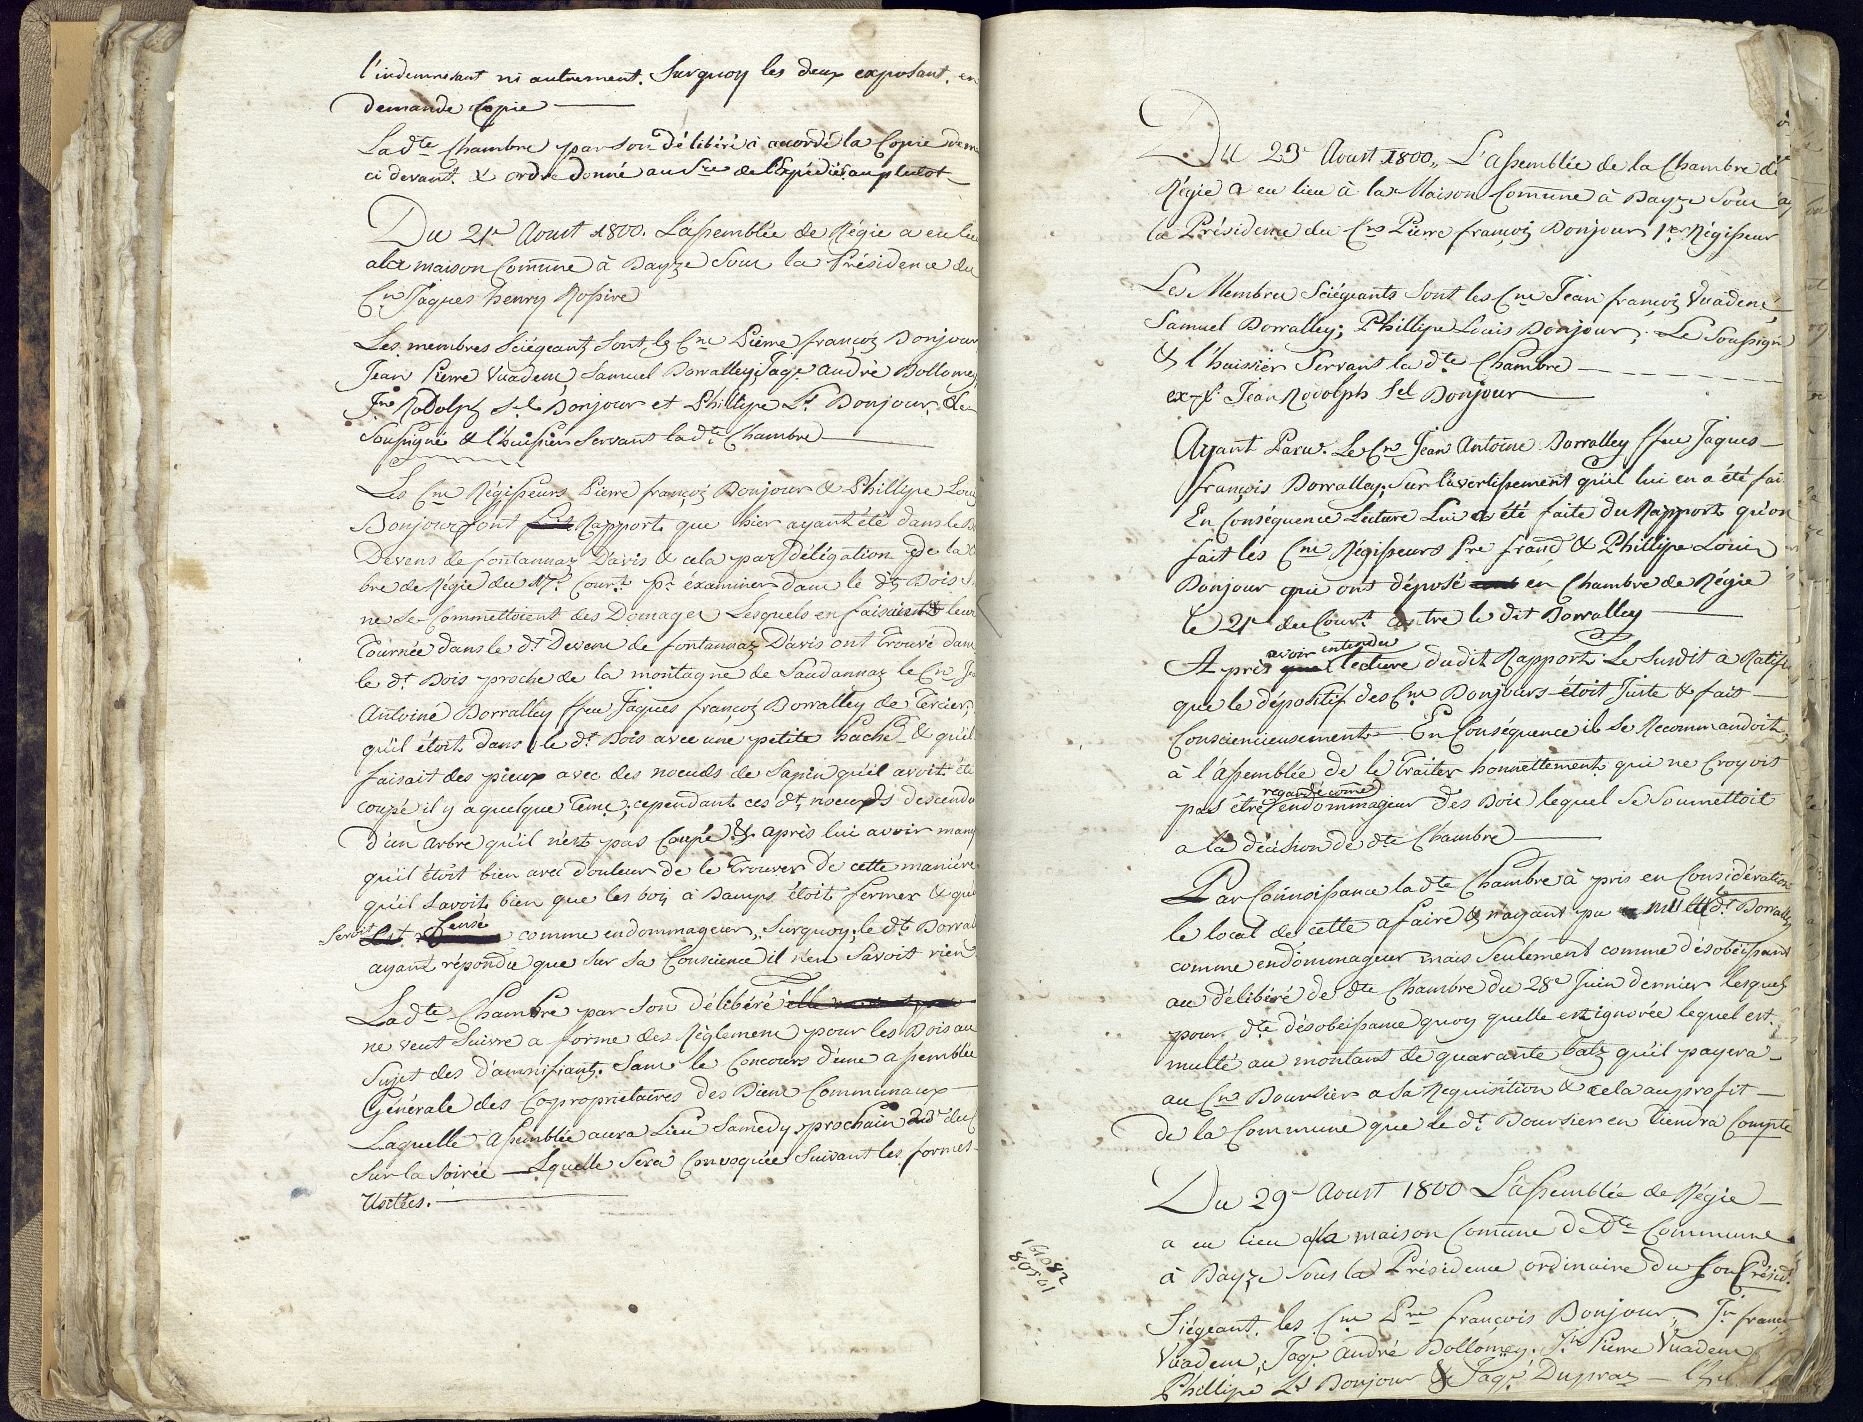 l'indemnisant ni autrement. Surquoy les deux exposant. en
demande Copie
La dte Chambre par son délibéré à accordé la Copie
ci devant. & ordre donné au Sre de l'Expédier au plutot
Du 21e Aoust 1800. L'assemblée de Régie a eu lieu
a la maison Commune à Bayze sous la Présidence du
Cn Jaques henry Rossire
Les membres Siégeants sont les Cne Pierre françois Bonjour
Jean Pierre Vuadens, Samuel Borralley, Jaqe André Bollomey
Jn Rodolph Sel Bonjour et Phillipe Ls Bonjour, Le
Soussigné & l'huissier Servant la dte Chambre
Les Cne Régisseurs Pierre françois Bonjour & Phillipe Louis
Bonjour font Rapport que hier ayant été dans le
Devens de fontannaz Davis & cela par délégation de la
bre de Régie du 17e Courrt pr éxaminer dans le dt Bois
ne se Commettoient des Domages Lesquels en faisient leur
Tournée dans le dt Devens de fontannaz Davis ont Trouvé dans
le dt Bois proche de la montagne de Saudannaz le Cn Jn
Antoine Borralley ffeu Jaques françois Borralley de Tercier,
qu'il étoit dans le dt Bois avec une petite hache & qu'il
faisait des pieux avec des noeuds de Sapin qu'il avoit été
coupé il y a quelque Tems; cependant ces dt noeuds descendu
d'un Arbre qu'il n'est pas Coupé & après lui avoir
qu'il étoit bien avec douleur de le Trouver de cette manière
qu'il savoit bien que les bois à Bamps étoit fermer & que
Seroit censé comme endommageur, Surquoy, le dt Borral
ayant répondu que sur sa Conscience il n'en savoit rien
La dte Chambre par son délibéré elle
ne veut suivre a forme des Règlemens pour les Bois au
sujet des d'amnifiants. Sans le Concours d'une assemblée
Générale des Copropriétaires des Biens Communaux
Laquelle Assemblée aura Lieu Samedy prochain 23e du Ct
sur la soirée Lquelle sera Convoquée suivant les formes
Usitées.
Du 23e Aoust 1800, L'Assemblée de la Chambre de
Régie a eu lieu à la Maison Commune à Bayze sous
la Présidence du Cn Pierre françois Bonjour 1er Régisseur
Les Membres Siégeants sont les Cne Jean françois Vuadens,
Samuel Borralley; Phillipe Louis Bonjour; Le Soussigné
& l'huissier Servant la dte Chambre
Jean Rodolph Sel Bonjour
Ayant Paru. Le Cn Jean Antoine Borralley ffeu Jaques
françois Borralley, sur l'avertissement qu'il lui en a été fait
En Conséquence Lecture Lui a été faite du Rapport qu'on
fait les Cne Régisseurs Pre frand & Phillipe Louis
Bonjour qui ont déposé en Chambre de Régie
le 21e du Court Contre le dit Borralley
Après avoir entendu lecture dudit Rapport Le Susdit a Ratifié
que le dépositif des Cne Bonjours étoit Juste & fait
Consciencieusement En Conséquence il se Recommandoit
à l'Assemblée de le Traiter honnettement qui ne Croyoit
pas être regardé come endommageur des Bois lequel se Soumettoit
a la décision de dte Chambre
Par Connoissance la dte Chambre à pris en Considération
le local de cette afaire & n'ayant pu le dt Borralley
comme endommageur mais seulement comme désobéissant
au délibéré de dte Chambre du 28e Juin dernier lesquels
pour dte désobéissance quoy quelle est ignorée lequel est
multé au montant de quarante batz qu'il payera
au Cn Boursier a sa Requisition & cela au profit
de la Commune que le dt Boursier en Tiendra Compte
Du 29e Aoust 1800 L'assemblée de Régie
a eu lieu a la maison Comune de dte Commune
à Bayze sous la Présidence ordinaire du son Présidt.
Siégeant. les Cne Pre françois Bonjour, Jn franço
Vuadens, Jaqe André Bollomey. Jn Pierre Vuadens
Phillipe Ls Bonjour & Jaqe Dupraz
161082
80591